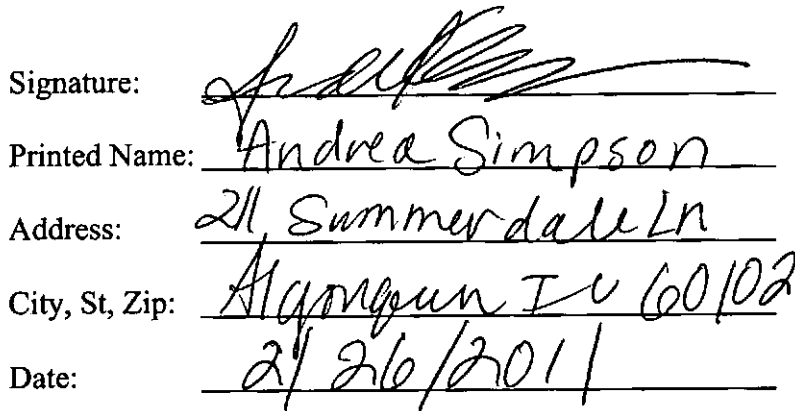 Signature:
Printed Name: Andrea Simpson
Address: 211 Summerdale Ln
City, St, Zip: Algonquin IL 60102
Date: 2/26/2011